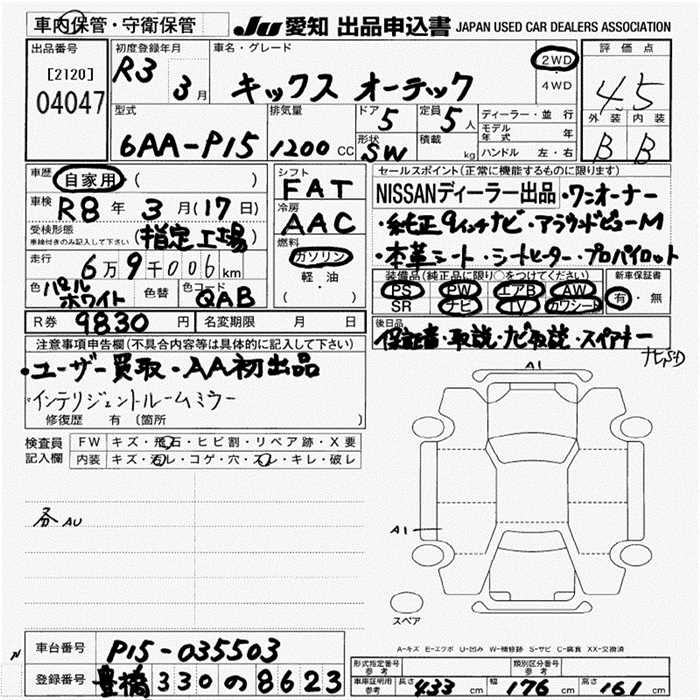 車内保管・守衛保管
Ju 愛知 出品申込書 JAPAN USED CAR DEALERS ASSOCIATION
出品番号
[2120]
04047
初度登録年月
R3 3月
車名・グレード
キックス オーテック
2WD
・
4WD
評価点
4.5
外装 内装
B B
型式
6AA-P15
排気量
1200 CC
ドア
5
形状
SW
定員
5人
積載
kg
ディーラー・並行
モデル年式 年
ハンドル 左・右
車歴
自家用 ( )
車検
R8年3月(17日)
受検形態
車検付きのみ記入して下さい
(指定工場)
走行
6万9千006km
色 パールホワイト
色替
色コード QAB
シフト
FAT
冷房
AAC
燃料
ガソリン
軽・油
( )
セールスポイント(正常に機能するものに限ります)
NISSANディーラー出品・ワンオーナー
・純正9インチナビ・アラウンドビューM
・本革シート・シートヒーター・プロパイロット
装備品(純正品に限り○をつけてください)
PS PW エアB AW
SR ナビ TV カワシート
新車保証書
有・無
R券 9830円
名変期限 月 日
後日品
保証書・取説・ナビ取説・スペアキー
ナビSD
注意事項申告欄(不具合内容等は具体的に記入して下さい)
・ユーザー買取・AA初出品
・インテリジェントルームミラー
修復歴 有 〔箇所 〕
検査員記入欄
FW キズ・飛石・ヒビ割・リペア跡・X要
内装 キズ・汚レ・コゲ・穴・スレ・キレ・破レ
各AU
A1
A1
スペア
A-キズ E-エクボ U-凹み W-補修跡 S-サビ C-腐食 XX-交換済
車台番号
P15-035503
登録番号
豊橋 330 の 8623
形式指定番号
参考
類別区分番号
参考
車庫証明用
参考
長さ 433 cm 幅 176 cm 高さ 161 cm